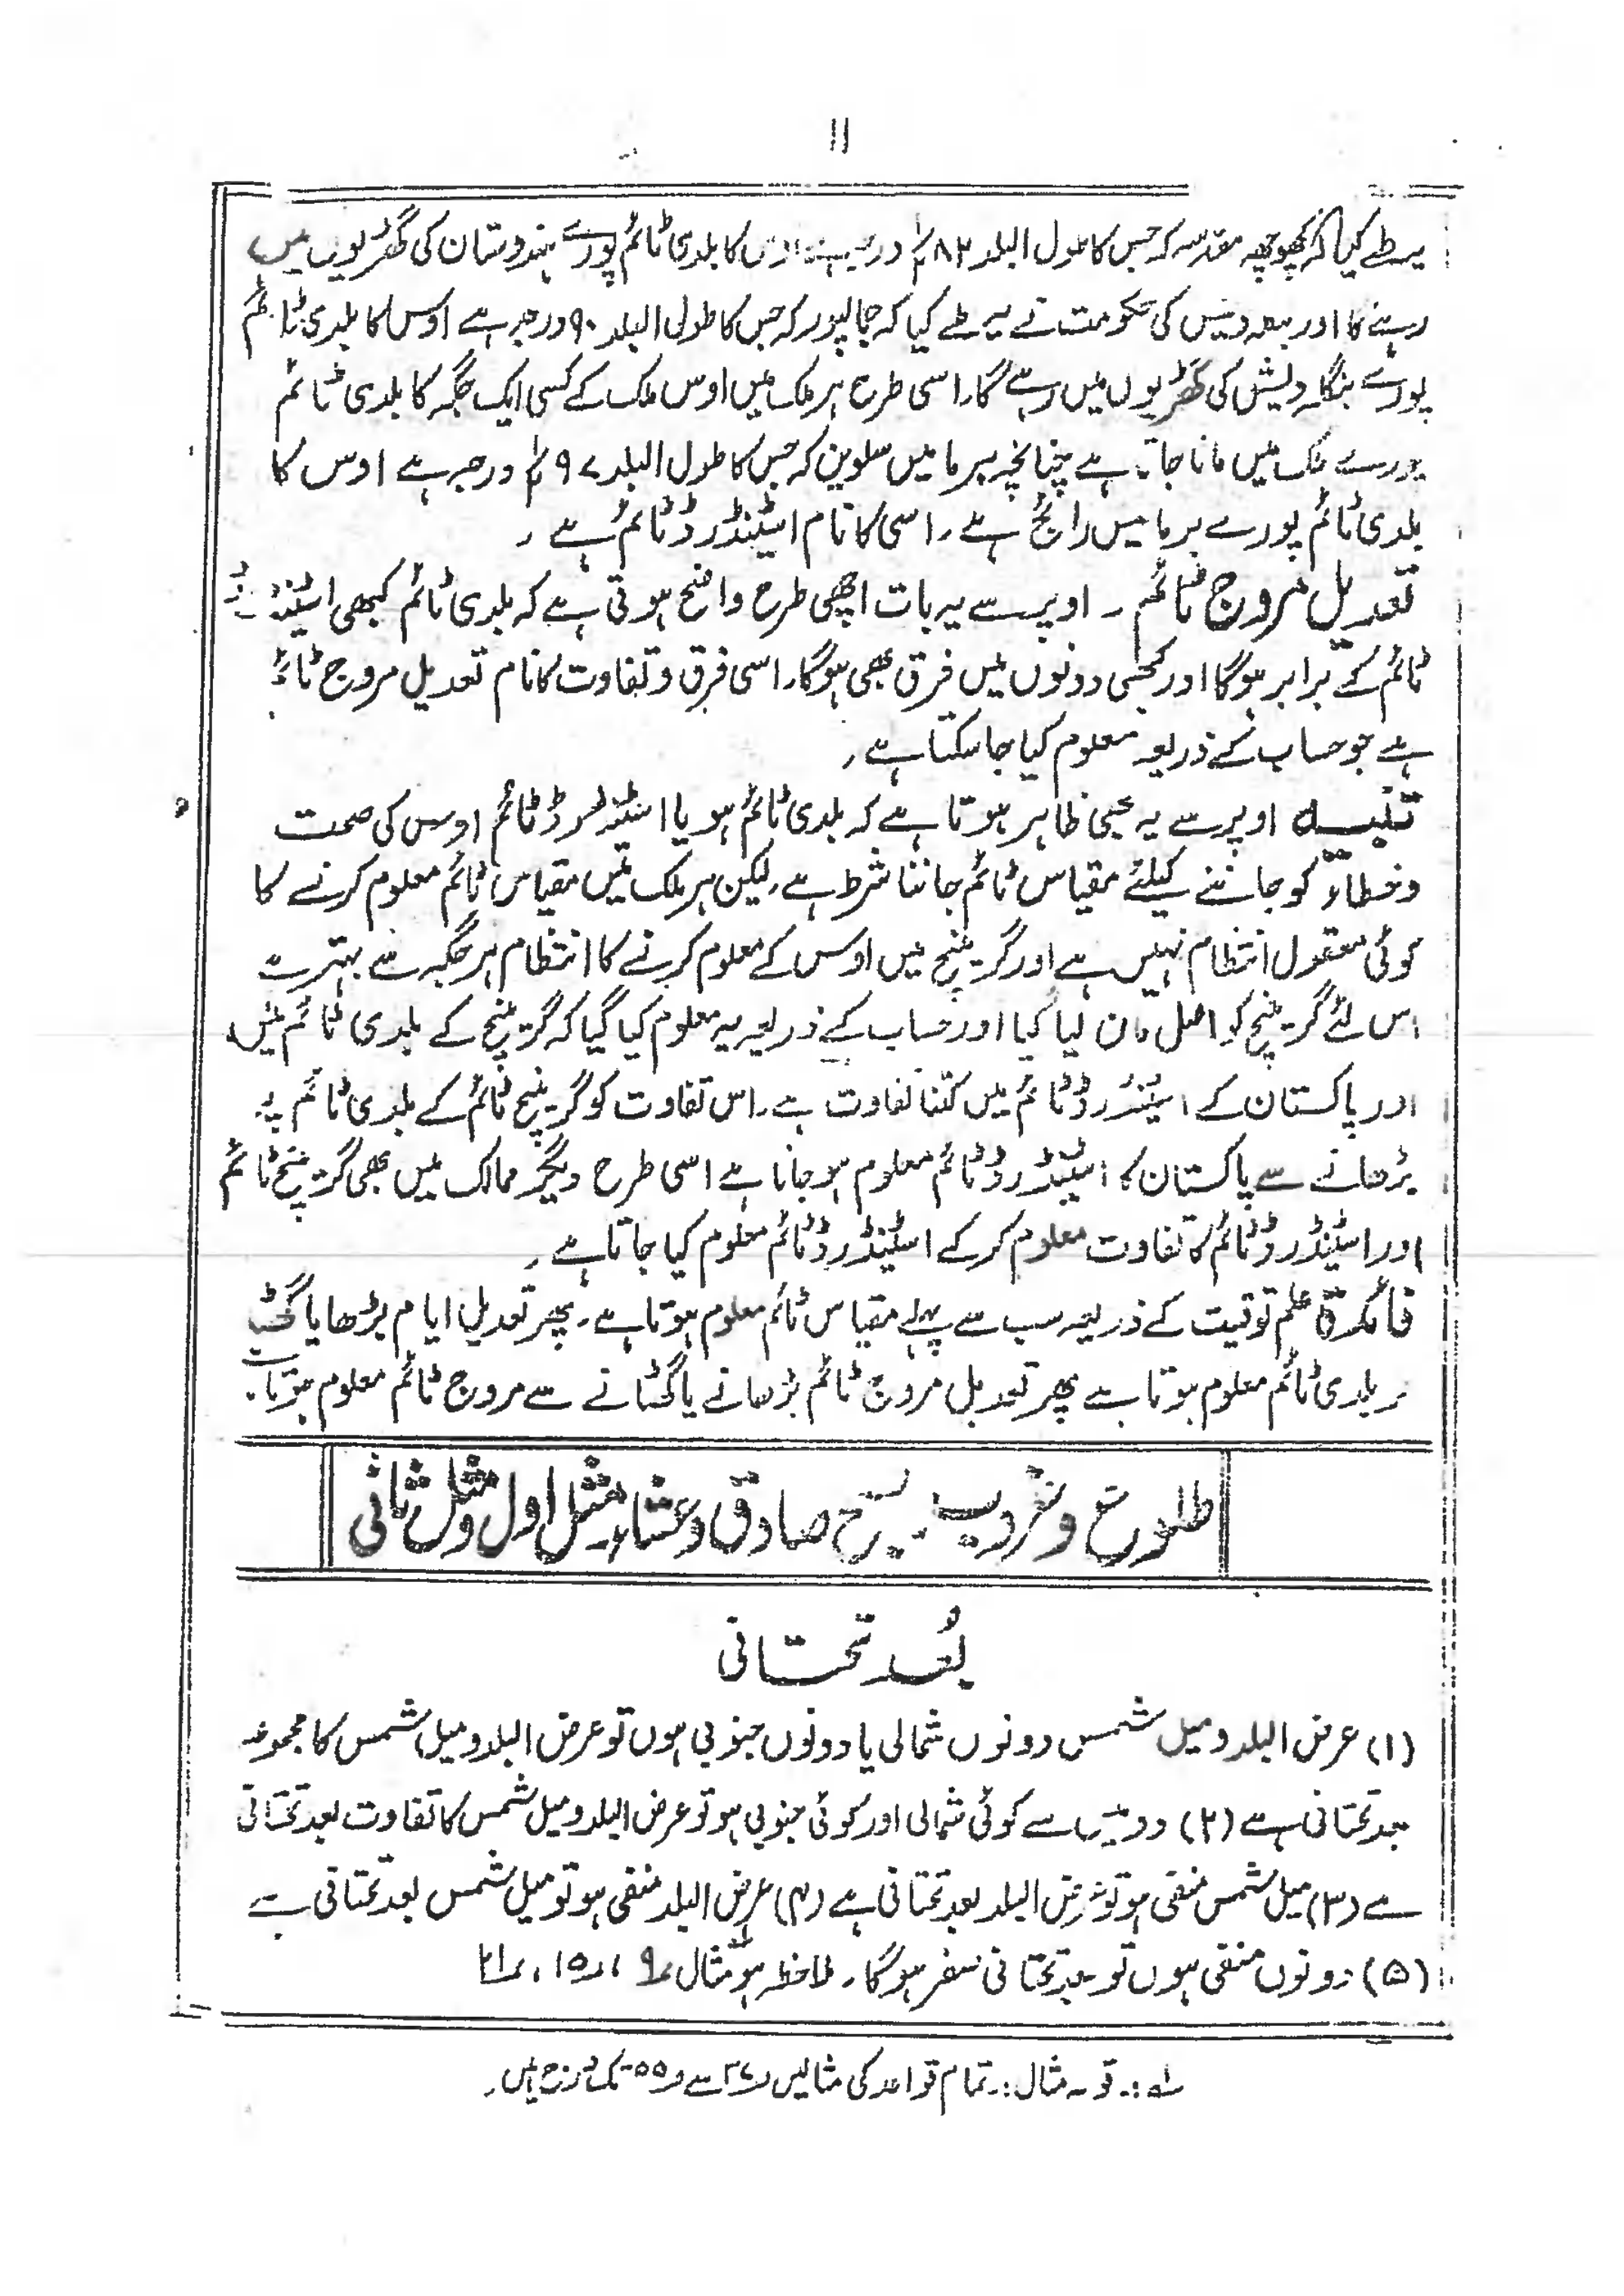 ۱۱
یہ طے کیا کہ کچھوچھہ مقدسہ کہ جس کا طول البلد ۸۲ درجہ ہے اوس کا بلدی ٹائم پورے ہندوستان کی گھڑیوں میں
رہنے گا اور بنگلہ دیش کی حکومت نے یہ طے کیا کہ جمالپور کہ جس کا طول البلد ۹۰ درجہ ہے اوس کا بلدی ٹائم
پورے بنگلہ دیش کی گھڑیوں میں رہے گا، اسی طرح ہر ملک میں اوس ملک کے کسی ایک جگہ کا بلدی ٹائم
پورے ملک میں مانا جاتا ہے چنانچہ برما میں سلوین کہ جس کا طول البلد ۹۷ درجہ ہے اوس کا
بلدی ٹائم پورے برما میں رائج ہے، اسی کا نام اسٹینڈرڈ ٹائم ہے ۔
تعدیل مروج ٹائم ۔ اوپر سے یہ بات اچھی طرح واضح ہوتی ہے کہ بلدی ٹائم کبھی اسٹینڈرڈ
ٹائم کے برابر ہوگا اور کبھی دونوں میں فرق بھی ہوگا، اسی فرق و تفاوت کا نام تعدیل مروج ٹائم
ہے جو حساب کے ذریعہ معلوم کیا جا سکتا ہے ۔
تنبیہ اوپر سے یہ بھی ظاہر ہوتا ہے کہ بلدی ٹائم ہو یا اسٹینڈرڈ ٹائم اوس کی صحت
وخطاء کو جاننے کیلئے مقیاس ٹائم جاننا شرط ہے، لیکن ہر ملک میں مقیاس ٹائم معلوم کرنے کا
کوئی معقول انتظام نہیں ہے اور گرینچ میں اوس کے معلوم کرنے کا انتظام ہر جگہ سے بہتر ہے
اس لئے گرینچ کو اصل مان لیا گیا اور حساب کے ذریعہ یہ معلوم کیا گیا کہ گرینچ کے بلدی ٹائم میں
اور پاکستان کے اسٹینڈرڈ ٹائم میں کتنا تفاوت ہے۔ اس تفاوت کو گرینچ ٹائم کے بلدی ٹائم پر
بڑھانے سے پاکستان کا اسٹینڈرڈ ٹائم معلوم ہو جاتا ہے اسی طرح دیگر ممالک میں بھی گرینچ ٹائم
اور اسٹینڈرڈ ٹائم کا تفاوت معلوم کر کے اسٹینڈرڈ ٹائم معلوم کیا جاتا ہے ۔
فائدۃ علم توقیت کے ذریعہ سب سے پہلے مقیاس ٹائم معلوم ہوتا ہے۔ پھر تعدیل ایام بڑھا یا گھٹا
کر بلدی ٹائم معلوم ہوتا ہے پھر تعدیل مروج ٹائم بڑھانے یا گھٹانے سے مروج ٹائم معلوم ہوتا ہے
طلوع و غروب ۔ صبح صادق و عشاء ۔ مثل اول و مثل ثانی
بُعد تحتانی
(۱) عرض البلد و میل شمس دونوں شمالی یا دونوں جنوبی ہوں تو عرض البلد و میل شمس کا مجموعہ
بعد تحتانی ہے (۲) دو میں سے کوئی شمالی اور کوئی جنوبی ہو تو عرض البلد و میل شمس کا تفاوت بعد تحتانی
ہے (۳) میل شمس منفی ہو تو عرض البلد بعد تحتانی ہے (۴) عرض البلد منفی ہو تو میل شمس بعد تحتانی ہے
(۵) دونوں منفی ہوں تو بعد تحتانی صفر ہوگا ۔ ملاحظہ ہو مثال ۹، ۱۵، ۲۱
قولہ مثال :۔ تمام قواعد کی مثالیں ص۲۷ سے ص۵۵ تک درج ہیں ۔